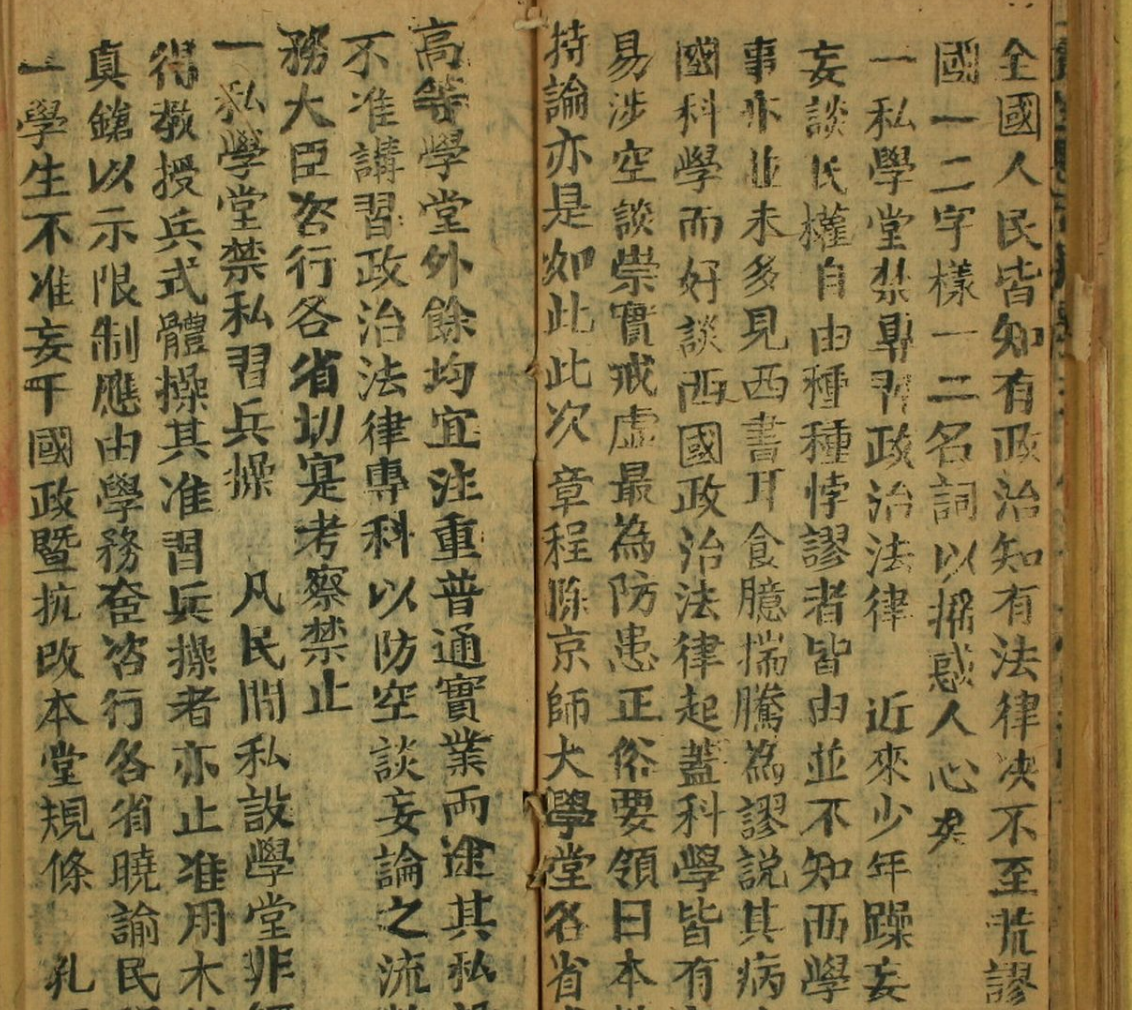 全國人民皆知有政治知有法律决不至荒謬
國一二字樣一二名詞以搖惑人心矣
一私學堂禁專習政治法律 近來少年躁妄
妄談民權自由種種悖謬者皆由並不知西學
事亦並未多見西書耳食臆揣騰為謬說其病
國科學而好談西國政治法律起蓋科學皆有
易涉空談崇實戒虛最為防患正俗要領日本
持論亦是如此此次章程除京師大學堂各省
高等學堂外餘均宜注重普通實業兩途其私
不准講習政治法律專科以防空談妄論之流
務大臣咨行各省切寔考察禁止
一私學堂禁私習兵操 凡民間私設學堂非
得教授兵式體操其准習兵操者亦止准用木
真鎗以示限制應由學務大臣咨行各省曉諭民
一學生不准妄干國政暨抗改本堂規條 孔